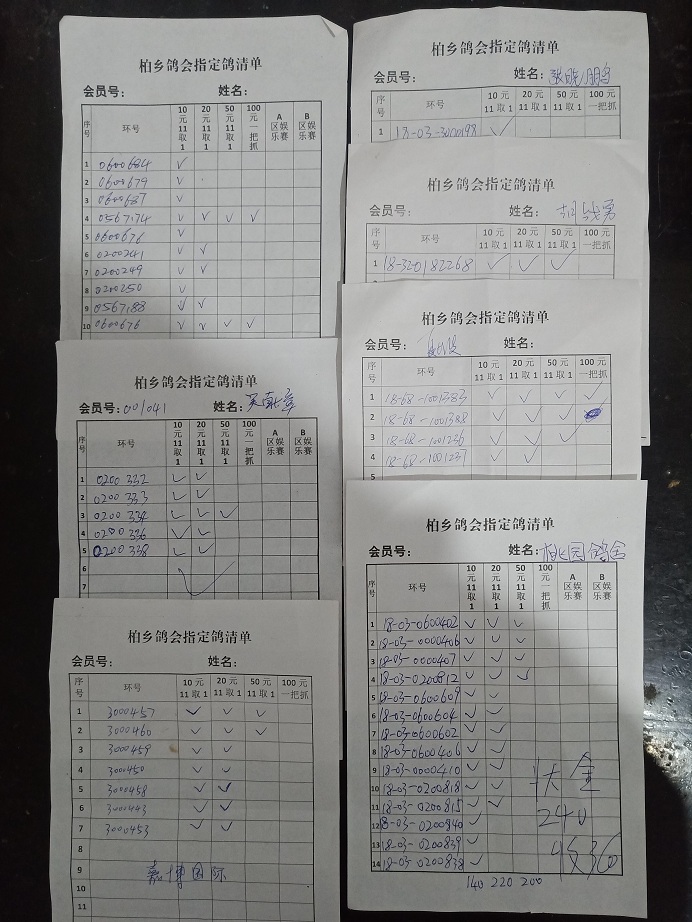 柏乡鸽会指定鸽清单
会员号: 姓名:
序号 环号 10元11取1 20元11取1 50元11取1 100元一把抓 A区娱乐赛 B区娱乐赛
1 0600684 √
2 0600679 √
3 0600687 √
4 0567174 √ √ √ √
5 0600676 √
6 0200241 √ √
7 0200249 √ √
8 0200250 √
9 0567188 √ √
10 0600676 √ √ √ √
柏乡鸽会指定鸽清单
会员号: 001041 姓名:
序号 环号 10元11取1 20元11取1 50元11取1 100元一把抓 A区娱乐赛 B区娱乐赛
1 0200332 √ √
2 0200333 √ √
3 0200334 √ √ √
4 0200336 √ √
5 0200338 √ √
6
7
柏乡鸽会指定鸽清单
会员号: 姓名:
序号 环号 10元11取1 20元11取1 50元11取1 100元一把抓
1 3000457 √ √ √
2 3000460 √ √ √
3 3000459 √ √
4 3000450 √ √
5 3000458 √ √
6 3000443 √ √
7 3000453 √ √
8
9 嘉博国际
10
11
柏乡鸽会指定鸽清单
会员号: 姓名: 张晓鹏
序号 环号 10元11取1 20元11取1 50元11取1 100元一把抓
1 18-03-3000198 √
柏乡鸽会指定鸽清单
会员号: 姓名:
序号 环号 10元11取1 20元11取1 50元11取1 100元一把抓
1 18-320182268 √ √ √
柏乡鸽会指定鸽清单
会员号: 姓名:
序号 环号 10元11取1 20元11取1 50元11取1 100元一把抓
1 18-68-1001383 √ √ √ √
2 18-68-1001388 √ √ √
3 18-68-1001236 √ √ √
4 18-68-1001237 √ √
5
柏乡鸽会指定鸽清单
会员号: 姓名: 桃园鸽舍
序号 环号 10元11取1 20元11取1 50元11取1 100元一把抓 A区娱乐赛 B区娱乐赛
1 18-03-0600402 √ √ √
2 18-03-0000406 √ √ √
3 18-03-0000407 √ √ √
4 18-03-0200812 √ √ √
5 18-03-0600609 √ √
6 18-03-0600604 √ √
7 18-03-0600602 √ √
8 18-03-0600406 √ √
9 18-03-0000410 √ √
10 18-03-0200818 √ √
11 18-03-0200815 √ √
12 18-03-0200840 √
13 18-03-0200839 √
14 18-03-0200838 √
240
收360
140 220 200